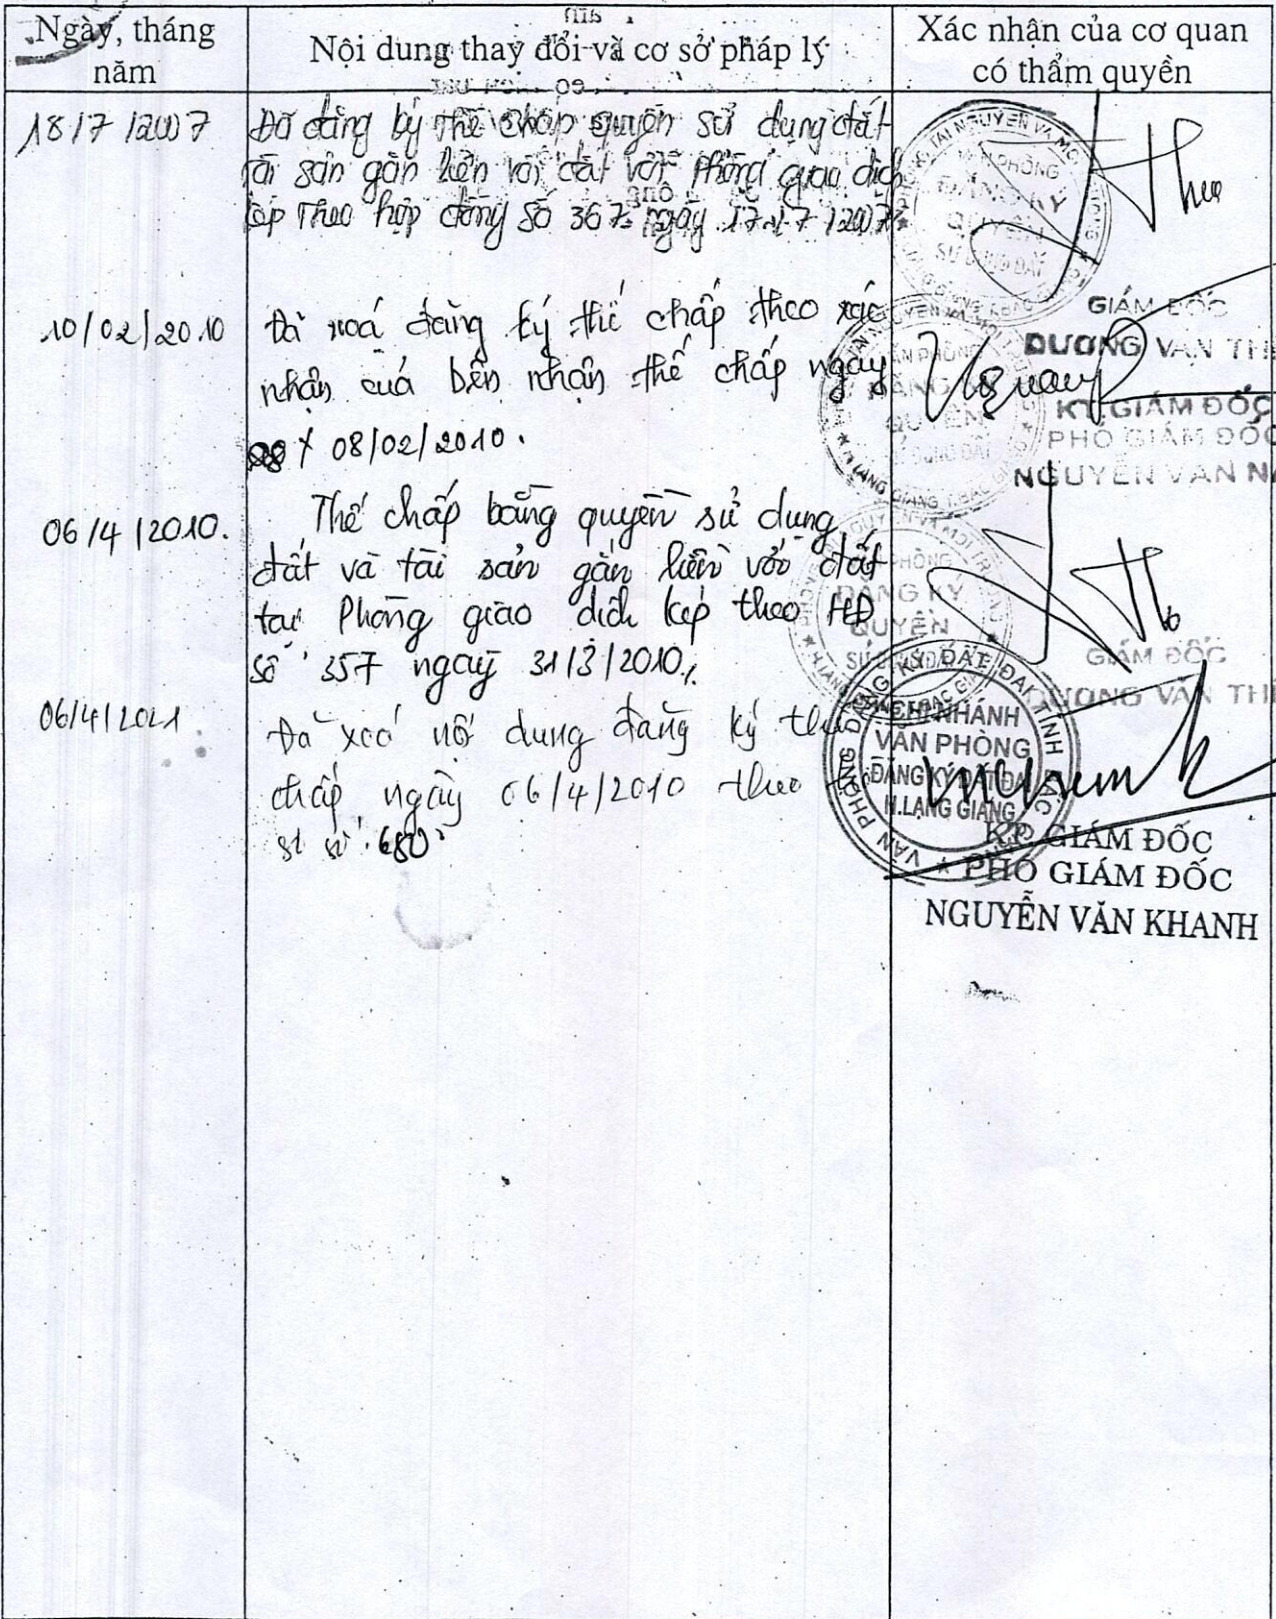 Ngày, tháng
năm
Nội dung thay đổi và cơ sở pháp lý
Xác nhận của cơ quan
có thẩm quyền
18/7/2007
Đã đăng ký thế chấp quyền sử dụng đất
tài sản gắn liền với đất với phòng giao dịch
kép theo hợp đồng số 367 ngày 17/7/2007
ĐĂNG KÝ
QUYỀN
SỬ DỤNG ĐẤT
GIÁM ĐỐC
DƯƠNG VĂN THI
10/02/2010
Đã xoá đăng ký thế chấp theo xác
nhận của bên nhận thế chấp ngày
08/02/2010.
KT GIÁM ĐỐC
PHÓ GIÁM ĐỐC
NGUYỄN VĂN
06/4/2010.
Thế chấp bằng quyền sử dụng
đất và tài sản gắn liền với đất
tại Phòng giao dịch kép theo HĐ
số 357 ngày 31/3/2010.
ĐĂNG KÝ
QUYỀN
GIÁM ĐỐC
DƯƠNG VĂN THI
06/4/2021
Đã xoá nội dung đăng ký thế
chấp ngày 06/4/2010 theo
680
VĂN PHÒNG ĐĂNG KÝ ĐẤT ĐAI TỈNH BẮC GIANG
CHI NHÁNH
VĂN PHÒNG
ĐĂNG KÝ ĐẤT ĐAI
H.LẠNG GIANG
KT. GIÁM ĐỐC
PHÓ GIÁM ĐỐC
NGUYỄN VĂN KHANH